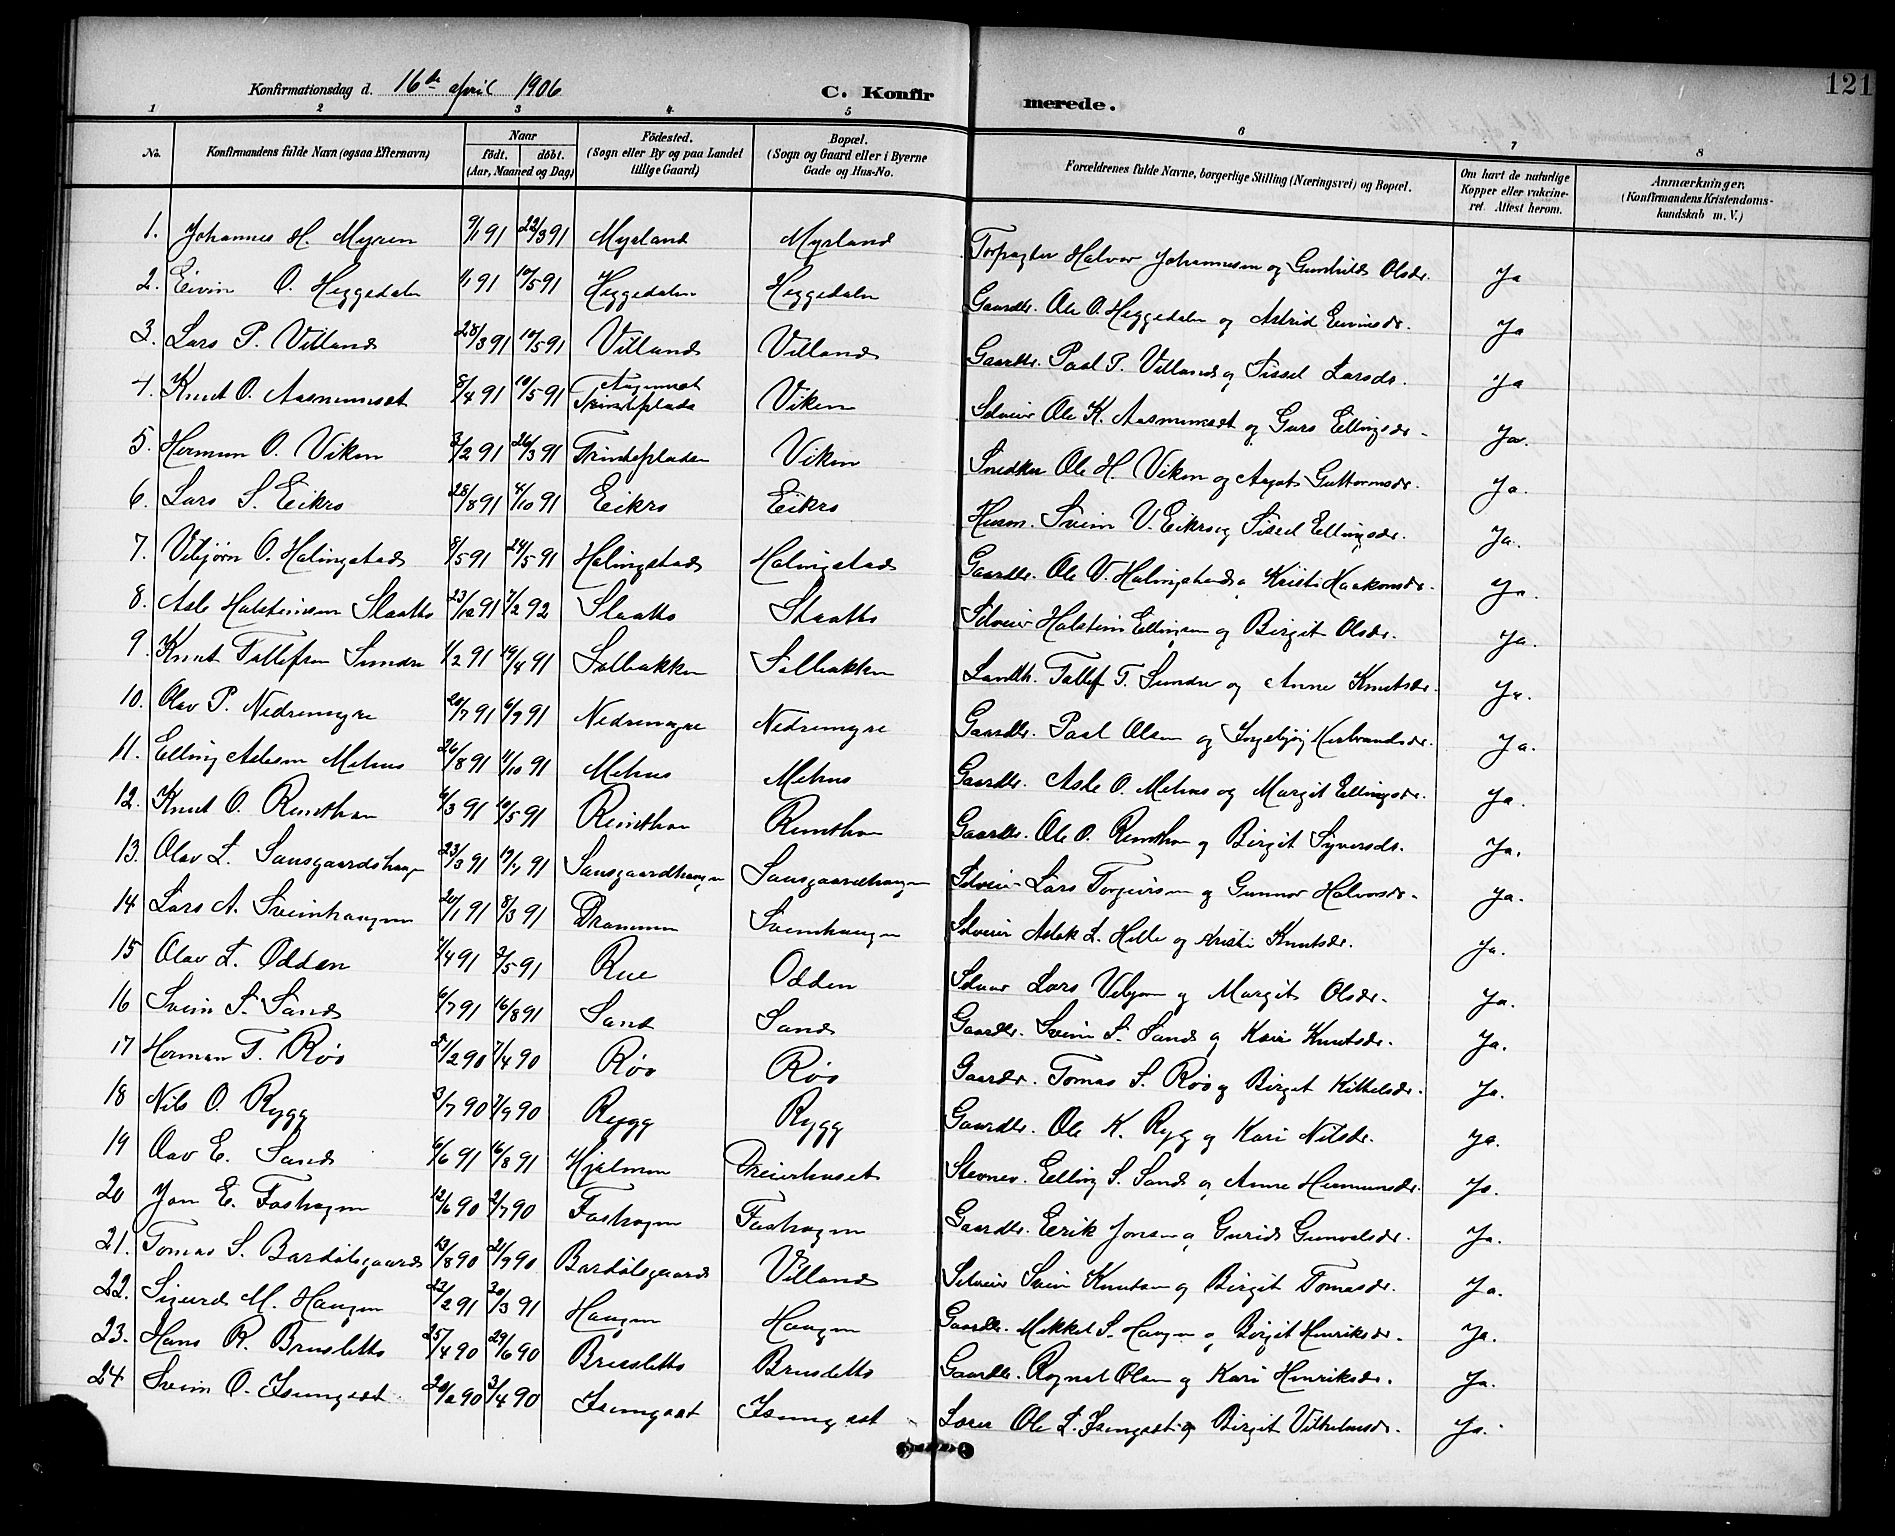 121
Konfirmationsdag d. 16de april 1906
C. Konfirmerede.
1 2 3 4 5 6 7 8
No. Konfirmandens fulde Navn (ogsaa Efternavn) Naar født. døbt. (Aar, Maaned og Dag) Fødested. (Sogn eller By og paa Landet tillige Gaard) Bopæl. (Sogn og Gaard eller i Byerne Gade og Hus-No. Forældrenes fulde Navne, borgerlige Stilling (Næringsvei) og Bopæl. Om havt de naturlige Kopper eller vakcineret. Attest herom. Anmærkninger. (Konfirmandens Kristendomskundskab m. V.)
1. Johannes H. Myren 9/1 91 22/3 91 Myrland Myrland Halvor Johannesen og Gunhild Olsdr. Ja
2. Eivin O. Heggedalen 1/1 91 10/5 91 Heggedalen Heggedalen Gaardbr. Ole O. Heggedalen og Astrid Eivinsdr. Ja
3. Lars P. Villand 28/3 91 10/5 91 Villand Villand Gaardbr. Paal P. Villand og Sissel Larsdr. Ja
4. Knut O. Aasmunset 8/4 91 10/5 91 Trintepladn Viken Selveier Ole K. Aasmunset og Guro Ellingsdr. Ja.
5. Herman O. Viken 3/2 91 26/3 91 Trintepladen Viken Snedker Ole H. Viken og Aagot Guttormsdr. Ja.
6. Lars S. Eikro 28/8 91 4/10 91 Eikro Eikro Husm. Svein V. Eikro og Sissel Ellingsdr. Ja.
7. Vebjørn O. Halingstad 8/5 91 24/5 91 Halingstad Halingstad Gaardbr. Ole V. Halingstad og Kristi Haakonsdr. Ja.
8. Asle Halsteinsen Slaatto 23/12 91 7/2 92 Slaatto Slaatto Selveier Halstein Ellingsen og Birgit Olsdr. Ja.
9. Knut Tollefsen Sundre 1/2 91 19/4 91 Solbakken Solbakken Landh. Tollef T. Sundre og Anne Knutsdr. Ja.
10. Olav P. Nedremyre 20/7 91 6/9 91 Nedremyre Nedremyre Gaardbr. Paal Olsen og Ingebjørg Herbrandsdr. Ja.
11. Elling Aslesen Mehus 26/8 91 11/10 91 Mehus Mehus Gaardbr. Asle O. Mehus og Margit Ellingsdr. Ja.
12. Knut O. Reinthon 6/3 91 10/5 91 Reinthon Reinthon Gaardbr. Ole O. Reinthon og Birgit Syversdr. Ja.
13. Olav L. Sansgaardshaugen 23/3 91 Sansgaardhaugen Sansgaardhaugen Selveier Lars Torgeirsen og Gunnor Halvorsdr. Ja.
14 Lars A. Sveinhaugen 20/1 91 8/3 91 Drammen Sveinhaugen Selveier Aslak L. Helle og Kristi Knutsdr. Ja.
15 Olav L. Odden 7/4 91 3/5 91 Rue Odden Selveier Lars Vebjørn og Margit Olsdr. Ja.
16 Svein S. Sand 6/7 91 16/8 91 Sand Sand Gaardbr. Svein S. Sand og Kari Knutsdr. Ja.
17 Herman T. Røo 21/2 90 7/4 90 Røo Røo Gaardbr. Tomas S. Røo og Birget Kittelsdr. Ja.
18 Nils O. Rygg 3/7 90 7/9 90 Rygg Rygg Gaardbr. Ole K. Ryg og Kari Nilsdr. Ja.
19 Oav E. Sand 6/6 91 16/8 91 Hjelmen Dreierhuset Elling S. Sand og Anne Hermunsdr. Ja.
20 Jon E. Foshagen 12/6 90 2/7 90 Foshagen Foshagen Gaardbr. Eerik Jonsen og Gurid Gunvalsdr. Ja.
21. Tomas S. Bardølsgaard 13/8 90 21/9 90 Bardølsgaard Villand Selveier Svein Knutsen og Birgit Tomasdr. Ja.
22. Sigurd M. Haugen 22/2 91 30/3 91 Haugen Haugen Gaardbr. Mekkel S. Haugen og Birgit Henriksdr. Ja.
23. Hans R. Brusletto 25/4 90 29/6 90 Brusletto Brusletto Gaardbr. Rognal Olsen og Kari Henriksdr. Ja.
24 Svein O. Isungset 20/2 90 3/4 90 Isungset Isungset Lærer Ole L. Isungset og Birgit Vilhelmsdr. Ja.